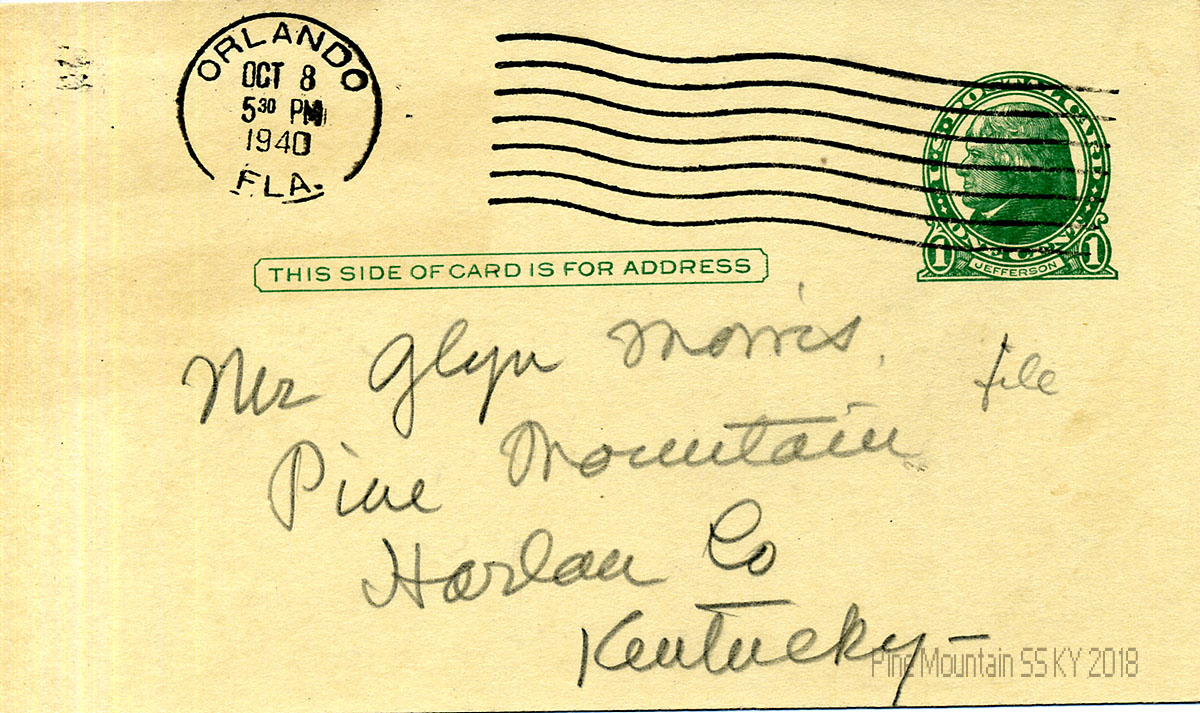 ORLANDO
OCT 8
5 30 PM
1940
FLA.
U.S. POSTAL CARD
ONE CENT
1 JEFFERSON 1
THIS SIDE OF CARD IS FOR ADDRESS
Mr Glyn Morris,
file
Pine Mountain
Harlan Co
Kentucky-
Pine Mountain SS KY 2018